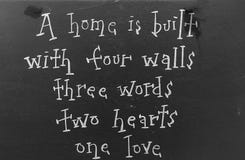 A home is built
with four walls
three words
two hearts
one love